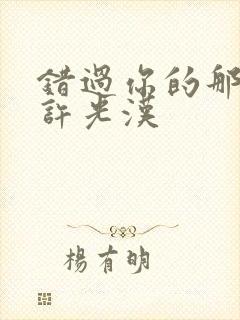 錯過你的那
許光漢
楊有明